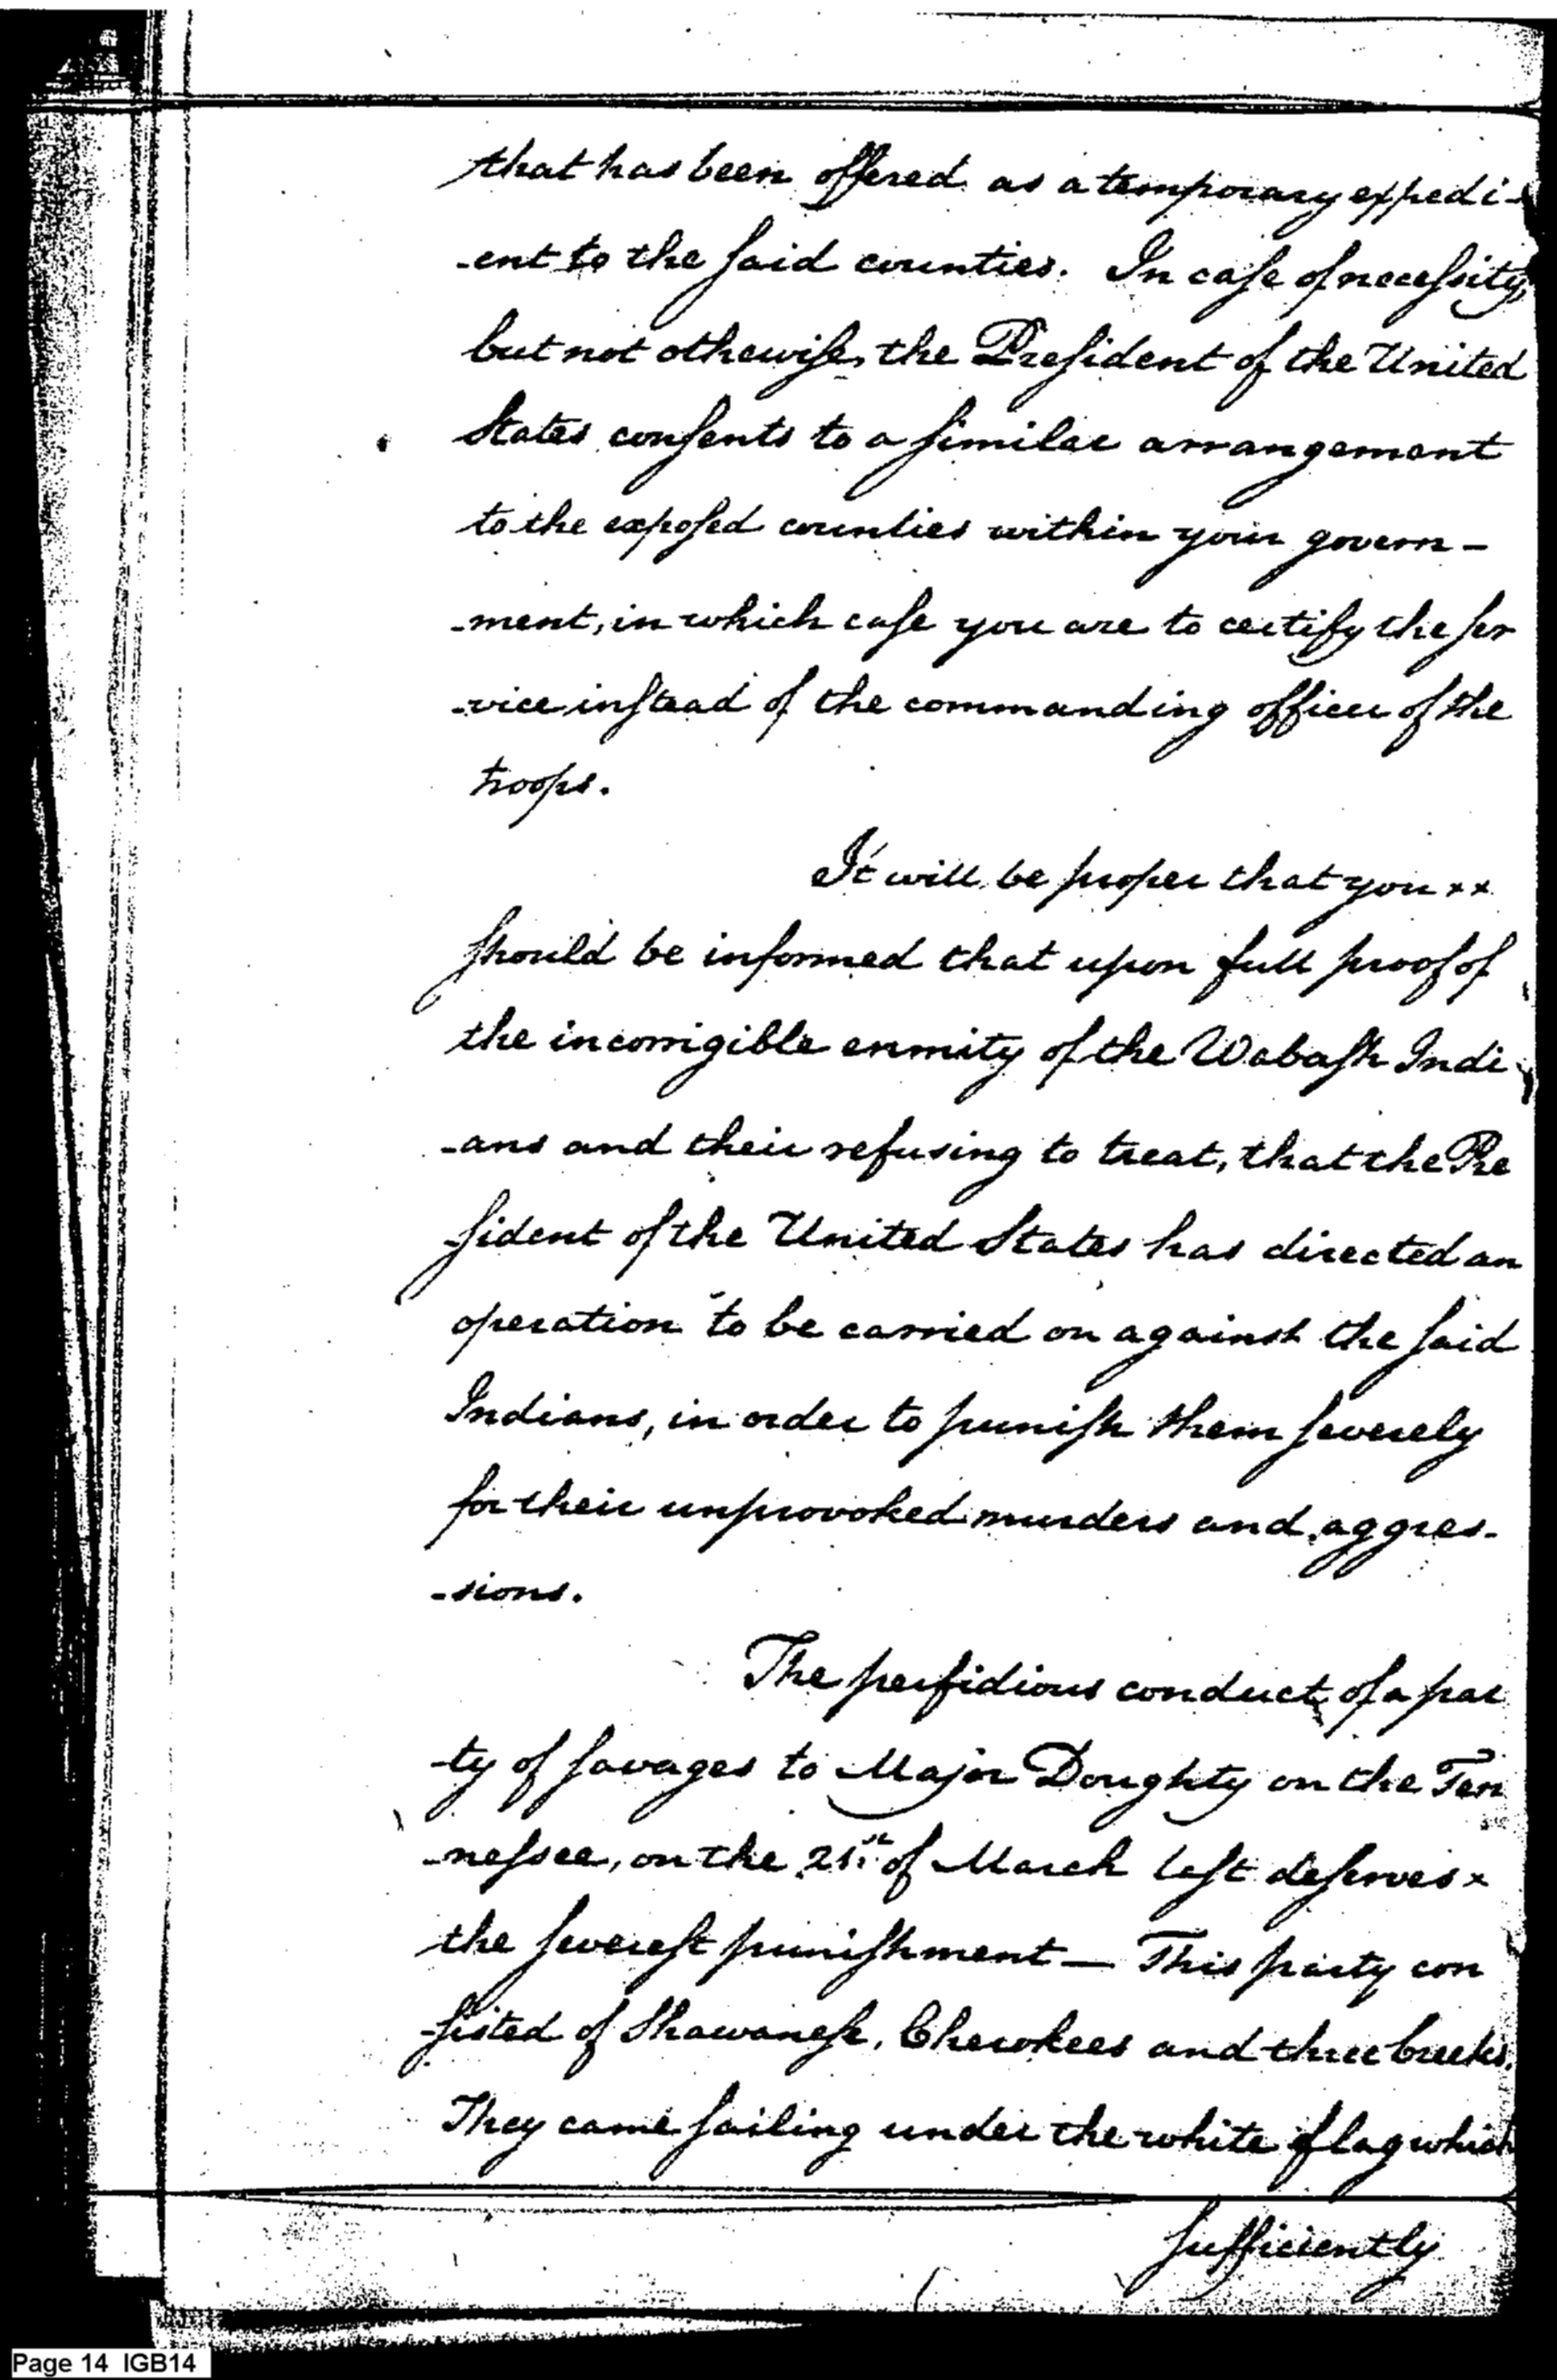 that has been offered as a temporary expedi-
-ent to the said counties. In case of necessity,
but not othewise, the President of the United
States consents to a similar arrangement
to the exposed counties within your govern-
-ment, in which case you are to certify the ser
-vice instead of the commanding officer of the
troops.
It will be proper that you xx
should be informed that upon full proof of
the incorrigible enmity of the Wabash Indi
-ans and their refusing to treat, that the Pre
-sident of the United States has directed an
operation to be carried on against the said
Indians, in order to punish them severely
for their unprovoked murders and aggres-
-sions.
The perfidious conduct of a par
-ty of savages to Major Doughty on the Ten
-nessee, on the 21st of March last deserves x
the severest punishment — This party con
-sisted of Shawanese, Cherokees and three Creeks.
They came sailing under the white flag which
sufficiently
Page 14 IGB14